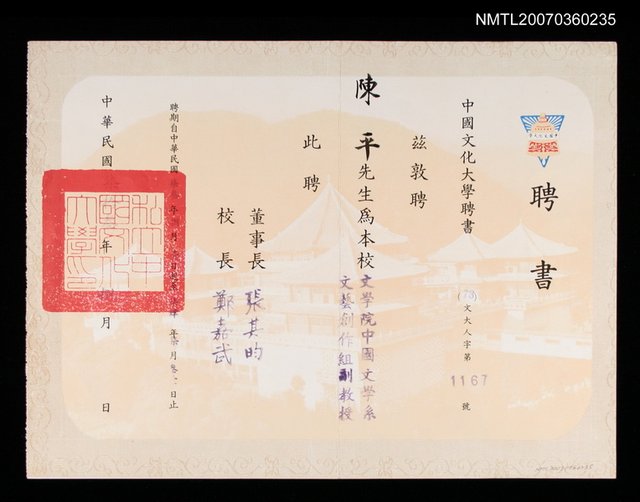 NMTL20070360235
聘書
中國文化大學聘書
(73)文大人字第1167號
茲敦聘
陳平先生為本校
文學院中國文學系
文藝創作組副教授
此聘
董事長 張其昀
校長 鄭嘉武
聘期自中華民國
年
月
日止
中華民國
年
月
日